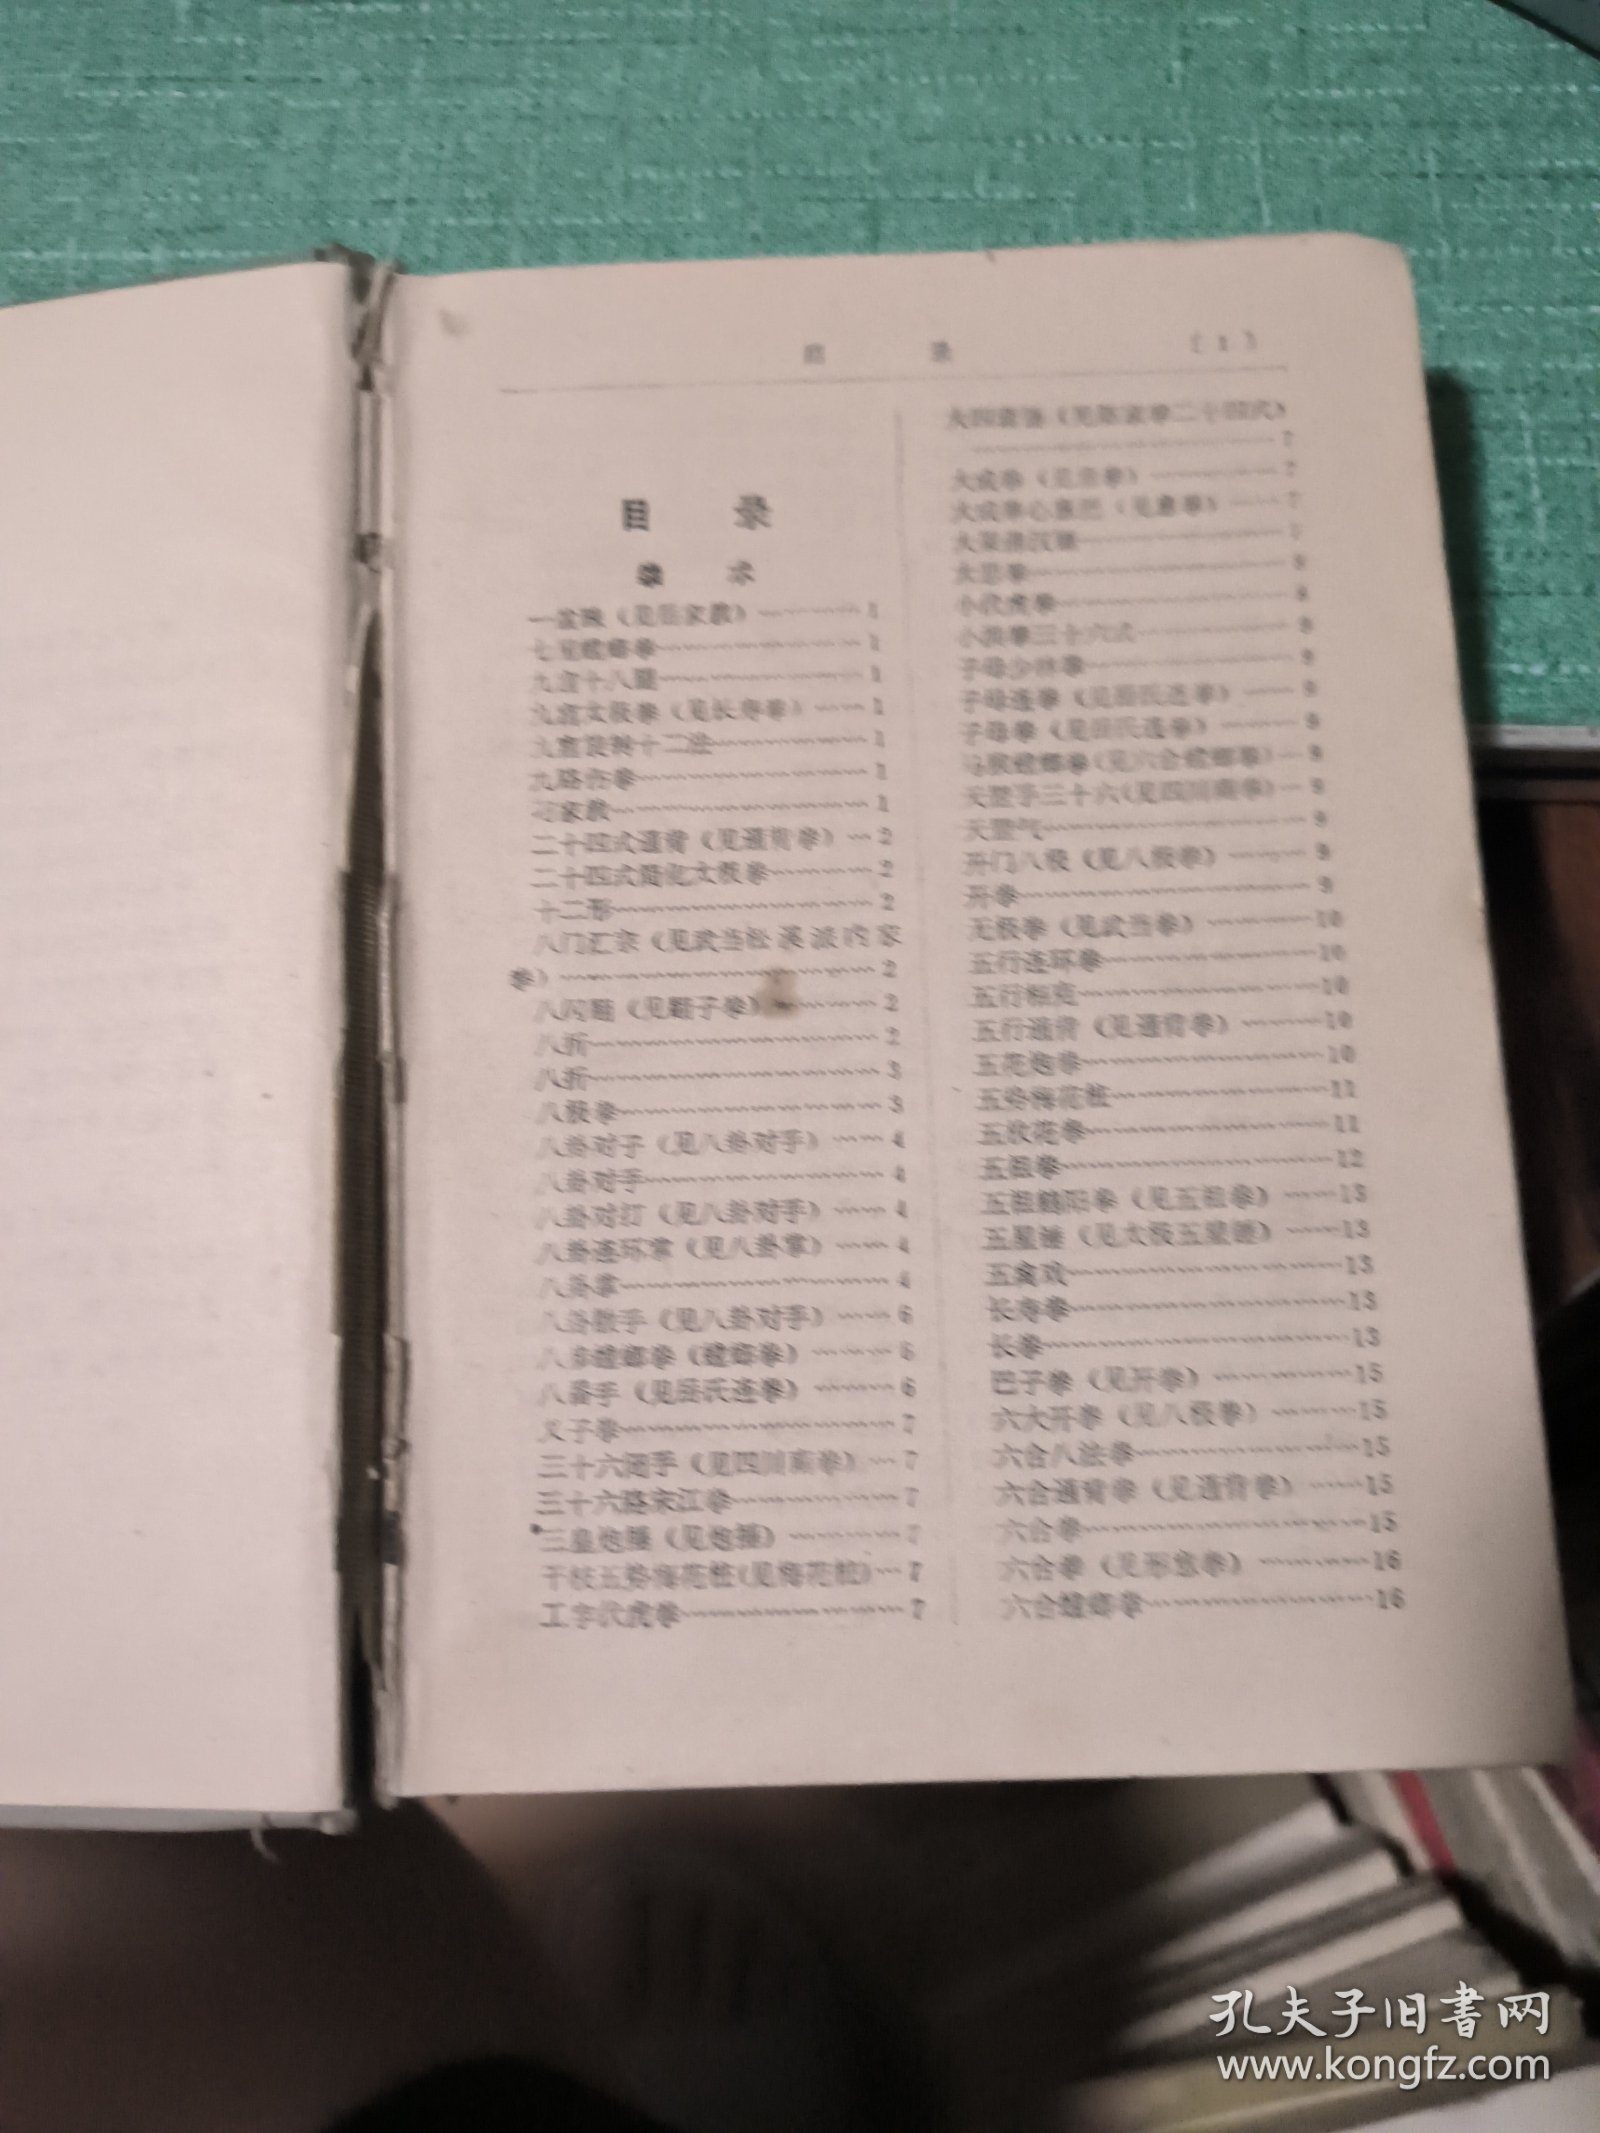 目 录 （1）
目 录
拳 术
七星螳螂拳 1
九宫十八腿 1
九宫太极拳（见长寿拳） 1
九宫 十二法 1
九路 拳 1
刁家教 1
二十四式通背（见通背拳） 2
二十四式简化太极拳 2
十二形 2
八门汇宗（见武当松溪派内家
拳） 2
八闪翻（见翻子拳） 2
八折 2
八折 3
八极拳 3
八卦对子（见八卦对手） 4
八卦对手 4
八卦对打（见八卦对手） 4
八卦连环掌（见八卦掌） 4
八卦掌 4
八卦散手（见八卦对手） 6
八步螳螂拳（螳螂拳） 6
八番手（见岳氏连拳） 6
叉子拳 7
三十六闭手（见四川南拳） 7
三十六路宋江拳 7
三皇炮捶（见炮捶） 7
干枝五势梅花桩（见梅花桩） 7
工字伏虎拳 7
大四套捶（见陈家拳二十四式）
7
大成拳（见意拳） 7
大成拳心意把（见意拳） 7
小伏虎拳 8
小洪拳三十六式 8
子母少林拳
子母连拳（见岳氏连拳）
子母拳（见岳氏连拳）
马猴螳螂拳（见六合螳螂拳）
天罡手三十六（见四川南拳）
天罡气
开门八极（见八极拳） 9
开拳 9
无极拳（见武当拳） 10
五行连环拳 10
五行相克 10
五行通背（见通背拳） 10
五花炮拳 10
五势梅花桩 11
五枚花拳 11
五祖拳 12
五祖鹤阳拳（见五祖拳） 13
五星捶（见太极五星捶） 13
五禽戏 13
长寿拳 13
长拳 13
巴子拳（见开拳） 15
六大开拳（见八极拳） 15
六合八法拳 15
六合通背拳（见通背拳） 15
六合拳 15
六合拳（见形意拳） 16
六合螳螂拳 16
孔夫子旧书网
www.kongfz.com